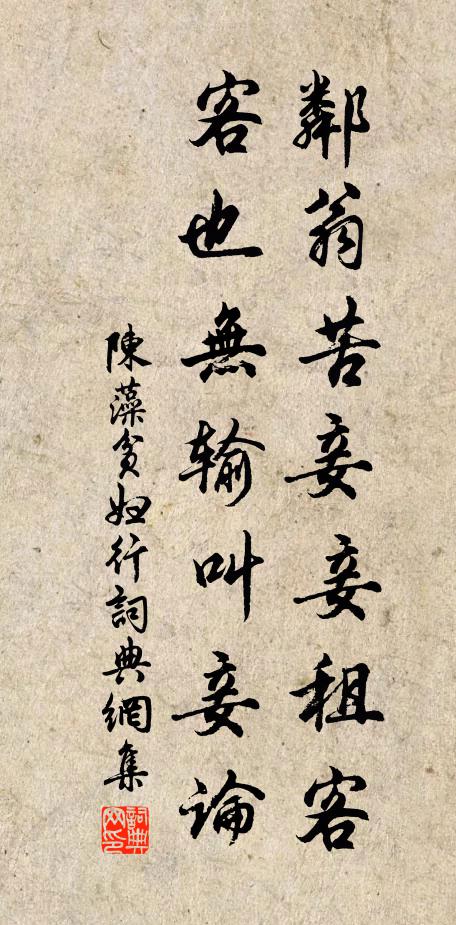 鄰翁苦妾妾租客
客也無输叫妾論
陳藻貧妲行詞典網集
詞典网印